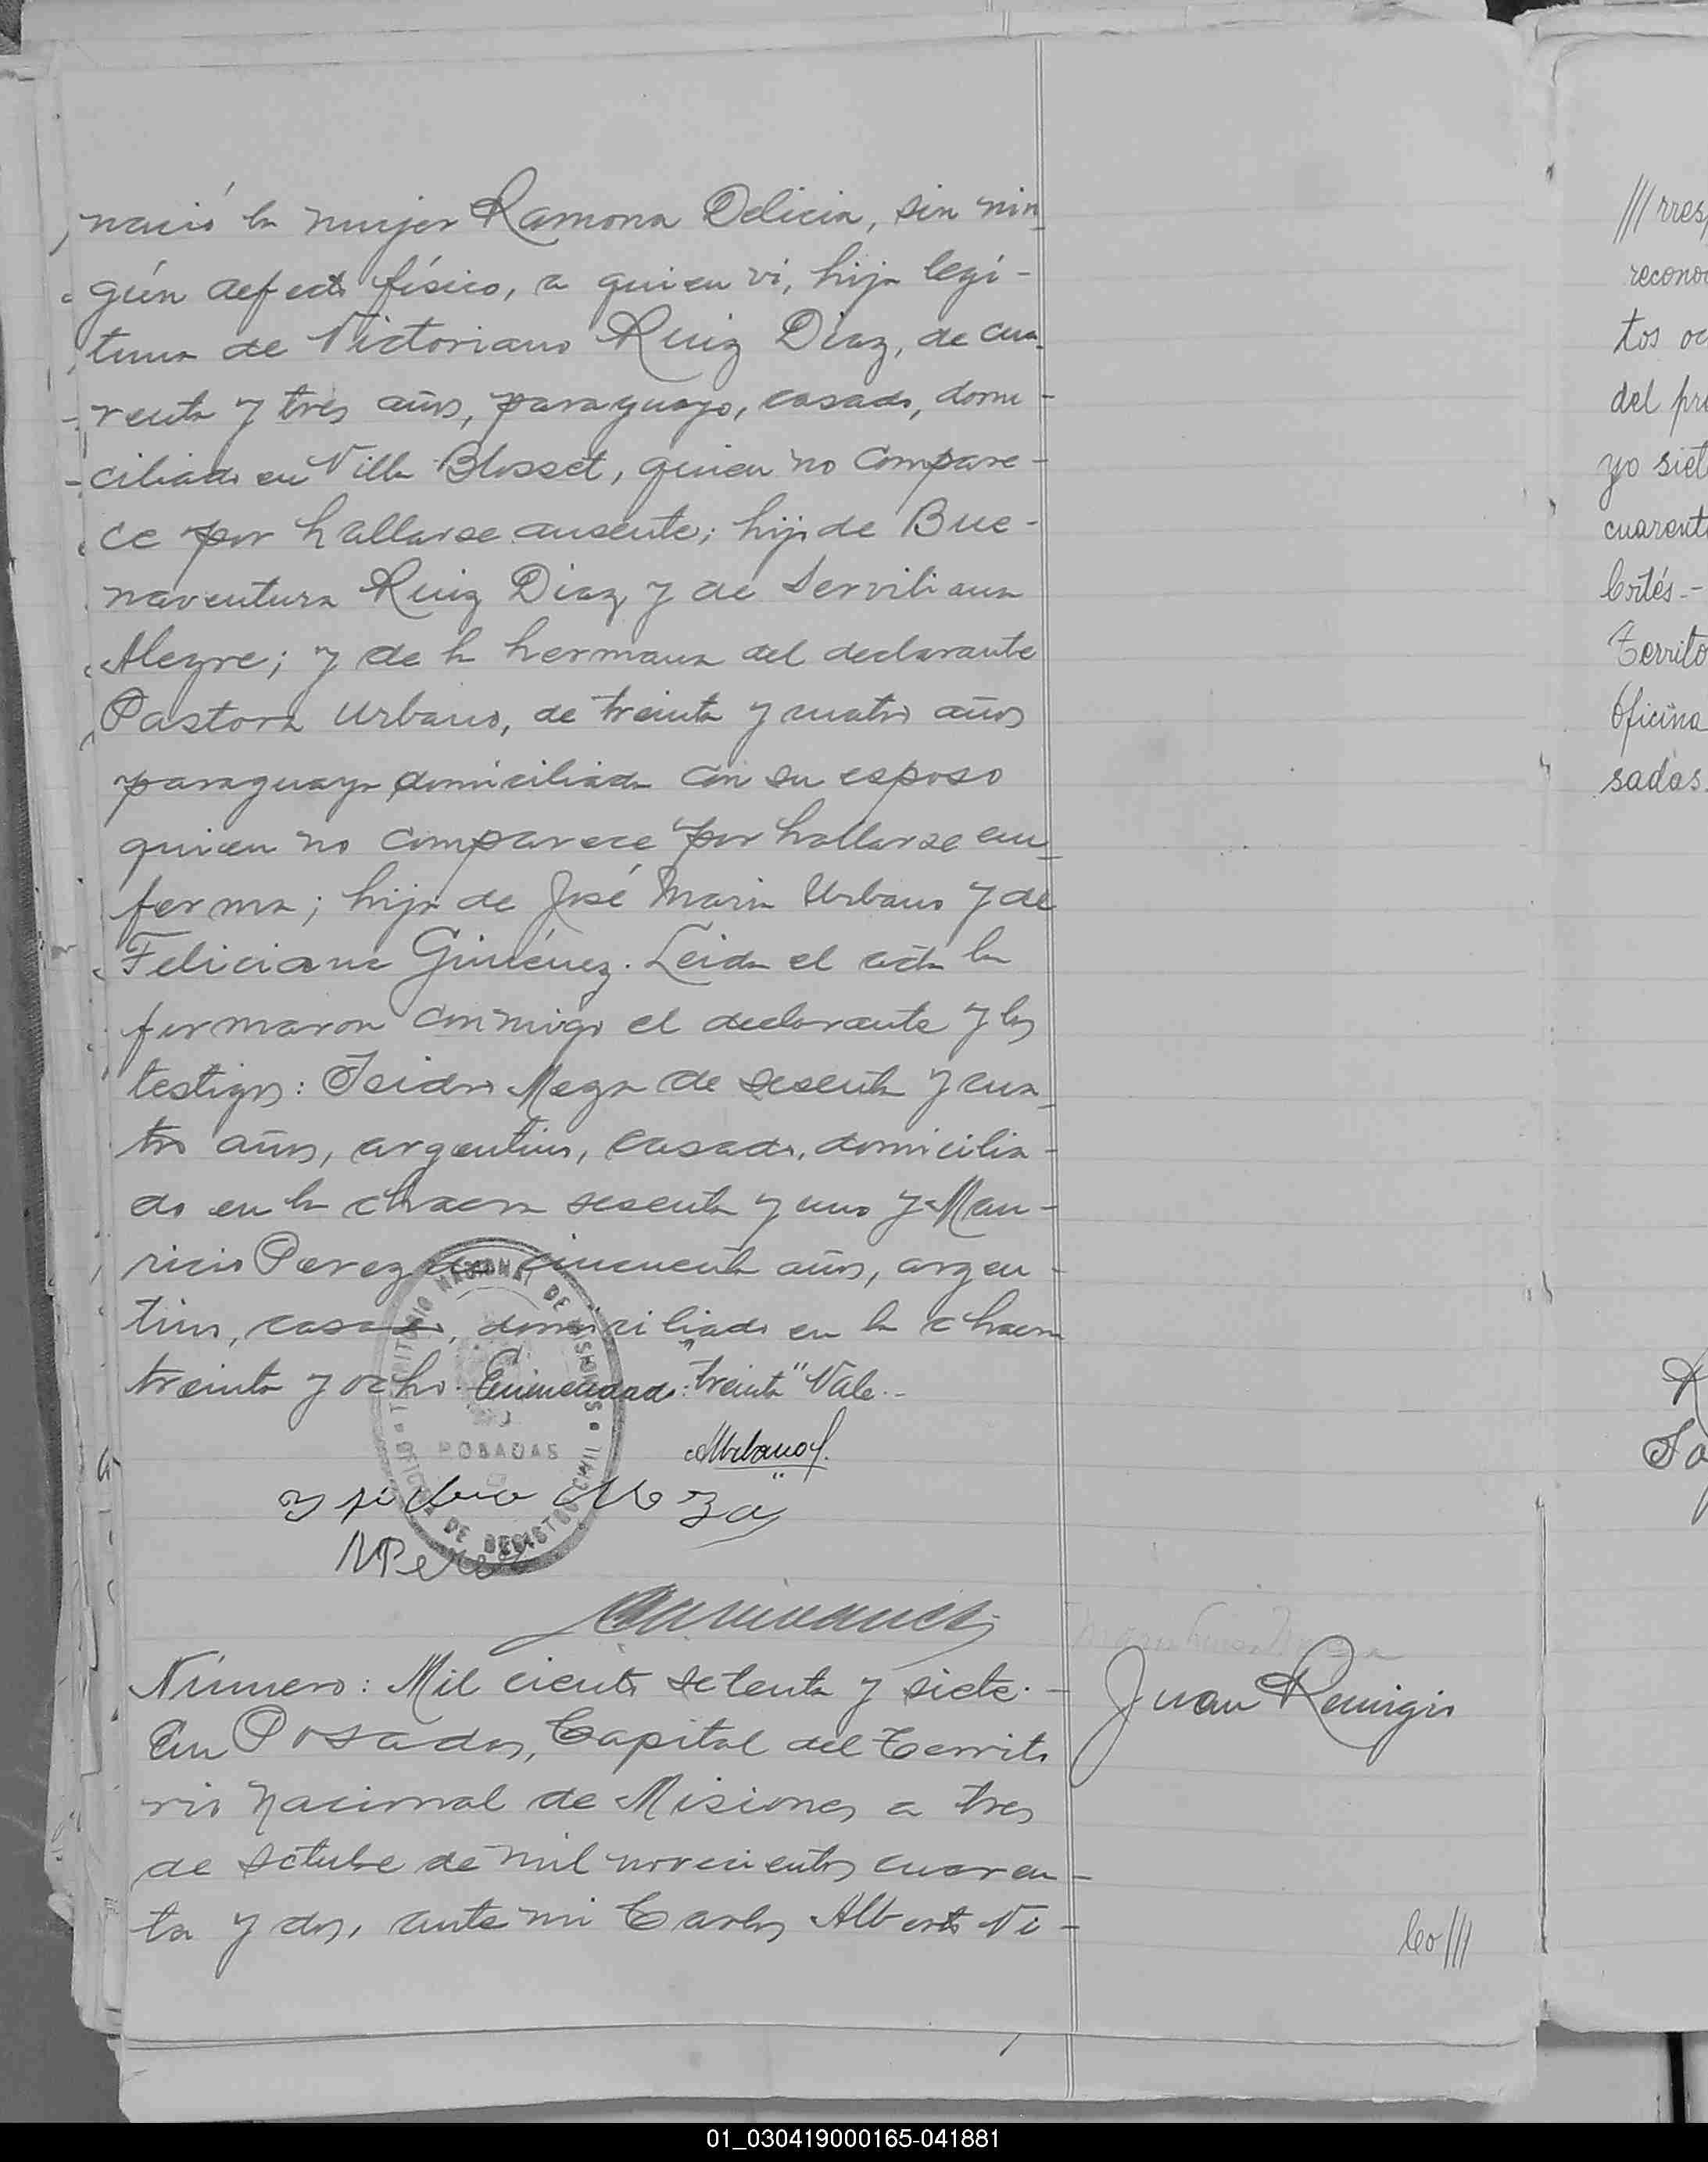 nació la mujer Ramona Delicia, sin nin
gún defecto físico, a quien vi, hija legí-
tima de Victoriano Ruiz Diaz, de cua
renta y tres años, paraguayo, casado, domi-
ciliado en Villa Blosset, quien no compare-
ce por hallarse ausente; hijo de Bue-
naventura Ruiz Diaz y de Serviliana
Alegre; y de la hermana del declarante
Pastora Urbano, de treinta y cuatro años
paraguaya domiciliada con su esposo
quien no comparece por hallarse en
ferma; hija de José Maria Urbano y de
Feliciana Giménez. Leida el acta la
firmaron conmigo el declarante y los
testigos: Isidro Meza de sesenta y cua
tro años, argentino, casado, domicilia-
do en la chacra sesenta y uno y Mau-
ricio Perez de cincuenta años, argen-
tino, casado, domiciliado en la chacra
treinta y ocho. Enmendado: "treinta" Vale.-
TERRITORIO NACIONAL DE MISIONES
POSADAS
OFICINA DE REGISTRO CIVIL
MUrbano
ysidro Meza
MPerez
Número: Mil ciento setenta y siete.-
En Posadas, Capital del Territo
rio Nacional de Misiones a tres
de octubre de mil novecientos cuaren-
ta y dos, ante mi Carlos Alberto Ni-
Juan Remigio
Co///
///rres
recono
tos oc
del pr
yo siet
cuarent
Cortés.-
Territo
Oficina
sadas.
01_030419000165-041881